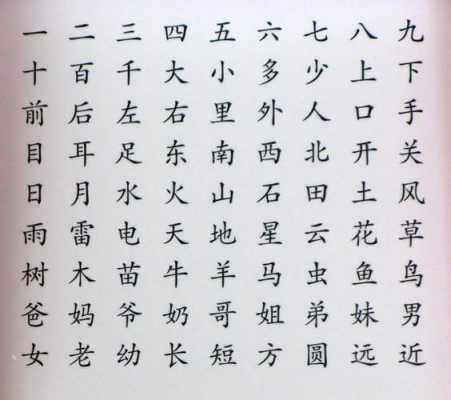 一 二 三 四 五 六 七 八 九
十 百 千 大 小 多 少 上 下
前 后 左 右 里 外 人 口 手
目 耳 足 东 南 西 北 开 关
日 月 水 火 山 石 田 土 风
雨 雷 电 天 地 星 云 花 草
树 木 苗 牛 羊 马 虫 鱼 鸟
爸 妈 爷 奶 哥 姐 弟 妹 男
女 老 幼 长 短 方 圆 远 近